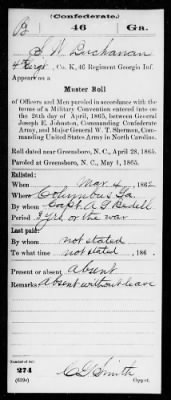 (Confederate.)
B 46 Ga.
S N Buchanan
4 Sergt, Co. K, 46 Regiment Georgia Inf.
Appears on a
Muster Roll
of Officers and Men paroled in accordance with the
terms of a Military Convention entered into on
the 26th day of April, 1865, between General
Joseph E. Johnston, Commanding Confederate
Army, and Major General W. T. Sherman, Com-
manding United States Army in North Carolina.
Roll dated near Greensboro, N. C., April 28, 1865.
Paroled at Greensboro, N. C., May 1, 1865.
Enlisted:
When Mar 4, 1862
Where Columbus Ga.
By whom Capt. A G Bedell
Period 3 yrs or the war
Last paid:
By whom not stated
To what time not stated, 186 .
Present or absent absent
Remarks: Absent without leave
Number of roll:
274
(639c) C G Smith
Copyist.